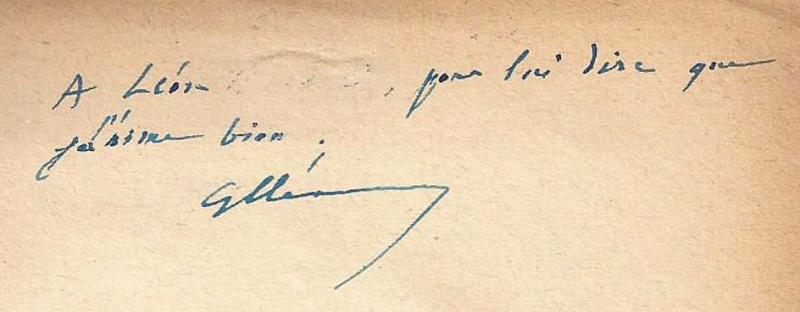 A Léon , pour lui dire que
je l'aime bien.